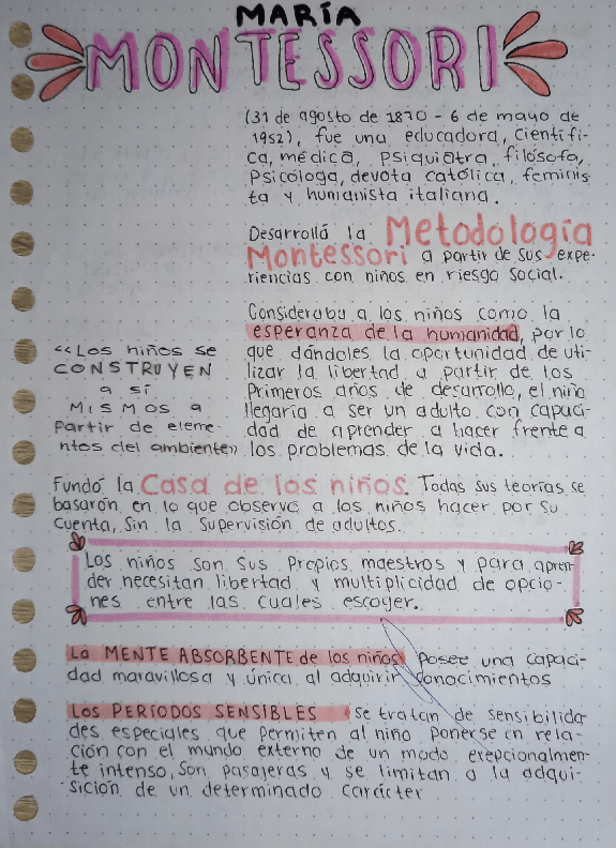 MARÍA
MONTESSORI
(31 de agosto de 1870 - 6 de mayo de
1952), fue una educadora, científi-
ca, médica, psiquiatra, filósofa,
psicóloga, devota católica, feminis
ta y humanista italiana.
Desarrolló la Metodología
Montessori a partir de sus expe-
riencias con niños en riesgo social.
Consideraba a los niños como la
esperanza de la humanidad, por lo
que dándoles la oportunidad de uti-
lizar la libertad a partir de los
Primeros años de desarrollo, el niño
llegaría a ser un adulto con capaci-
dad de aprender a hacer frente a
los problemas de la vida.
<<Los niños se
CONSTRUYEN
a sí
MISMOS a
partir de eleme-
ntos del ambiente>>
Fundó la Casa de los niños. Todas sus teorías se
basarón en lo que observó a los niños hacer por su
cuenta, sin la supervisión de adultos.
Los niños son sus propios maestros y para apren
der necesitan libertad y multiplicidad de opcio-
nes entre las cuales escoger.
La MENTE ABSORBENTE de los niños posee una capaci-
dad maravillosa y única al adquirir conocimientos
Los PERÍODOS SENSIBLES se tratan de sensibilida
des especiales que permiten al niño ponerse en rela-
ción con el mundo externo de un modo exepcionalmen-
te intenso, son pasajeras y se limitan a la adqui-
sición de un determinado carácter